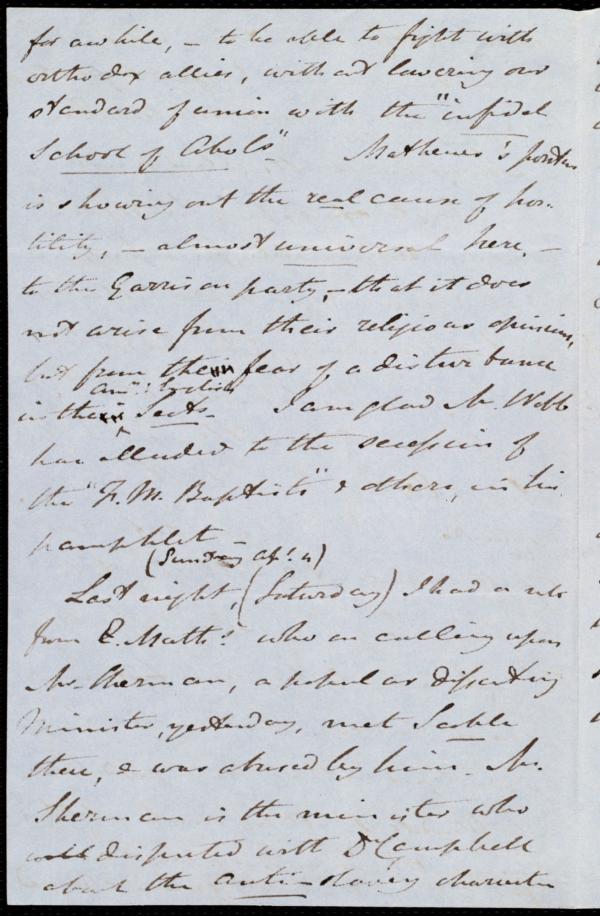 for awhile, – to be able to fight with
orthodox allies, without lowering our
standard of union with the "infidel
School of Abol.s" Mathews's position
is showing out the real cause of hos-
tility, – almost universal here, –
to the Garrison party, – that it does
not arise from their religious opinions,
but from the fear of a disturbance
in the Sects. I am glad Mr. Webb
has alluded to the secession of
the "F. W. Baptists" & others, in his
pamphlet –
(Sunday Ap! 4)
Last night, (Saturday) I had a note
from E. Math.s who on calling upon
Mr. Sherman, a popular dissenting
Minister, yesterday, met Soble
there, & was abused by him. Mr.
Sherman is the minister who
disputed with Dr Campbell
about the anti-slavery character